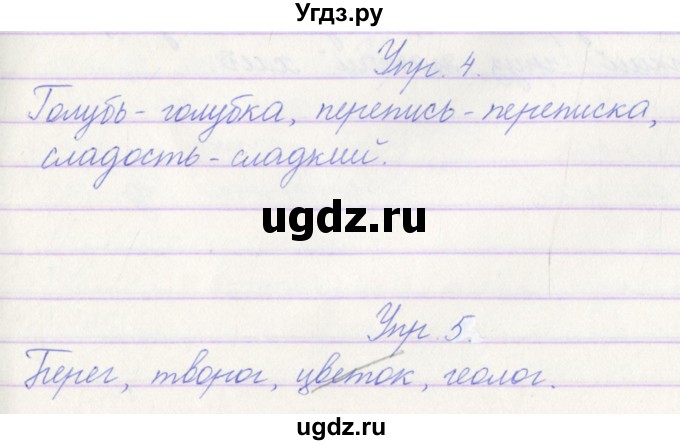 Угдз.ру
Упр. 4.
Голубь - голубка, перепись - переписка,
сладость - сладкий.
ugdz.ru
Упр. 5.
Берег, творог, цветок, геолог.
ugdz.ru